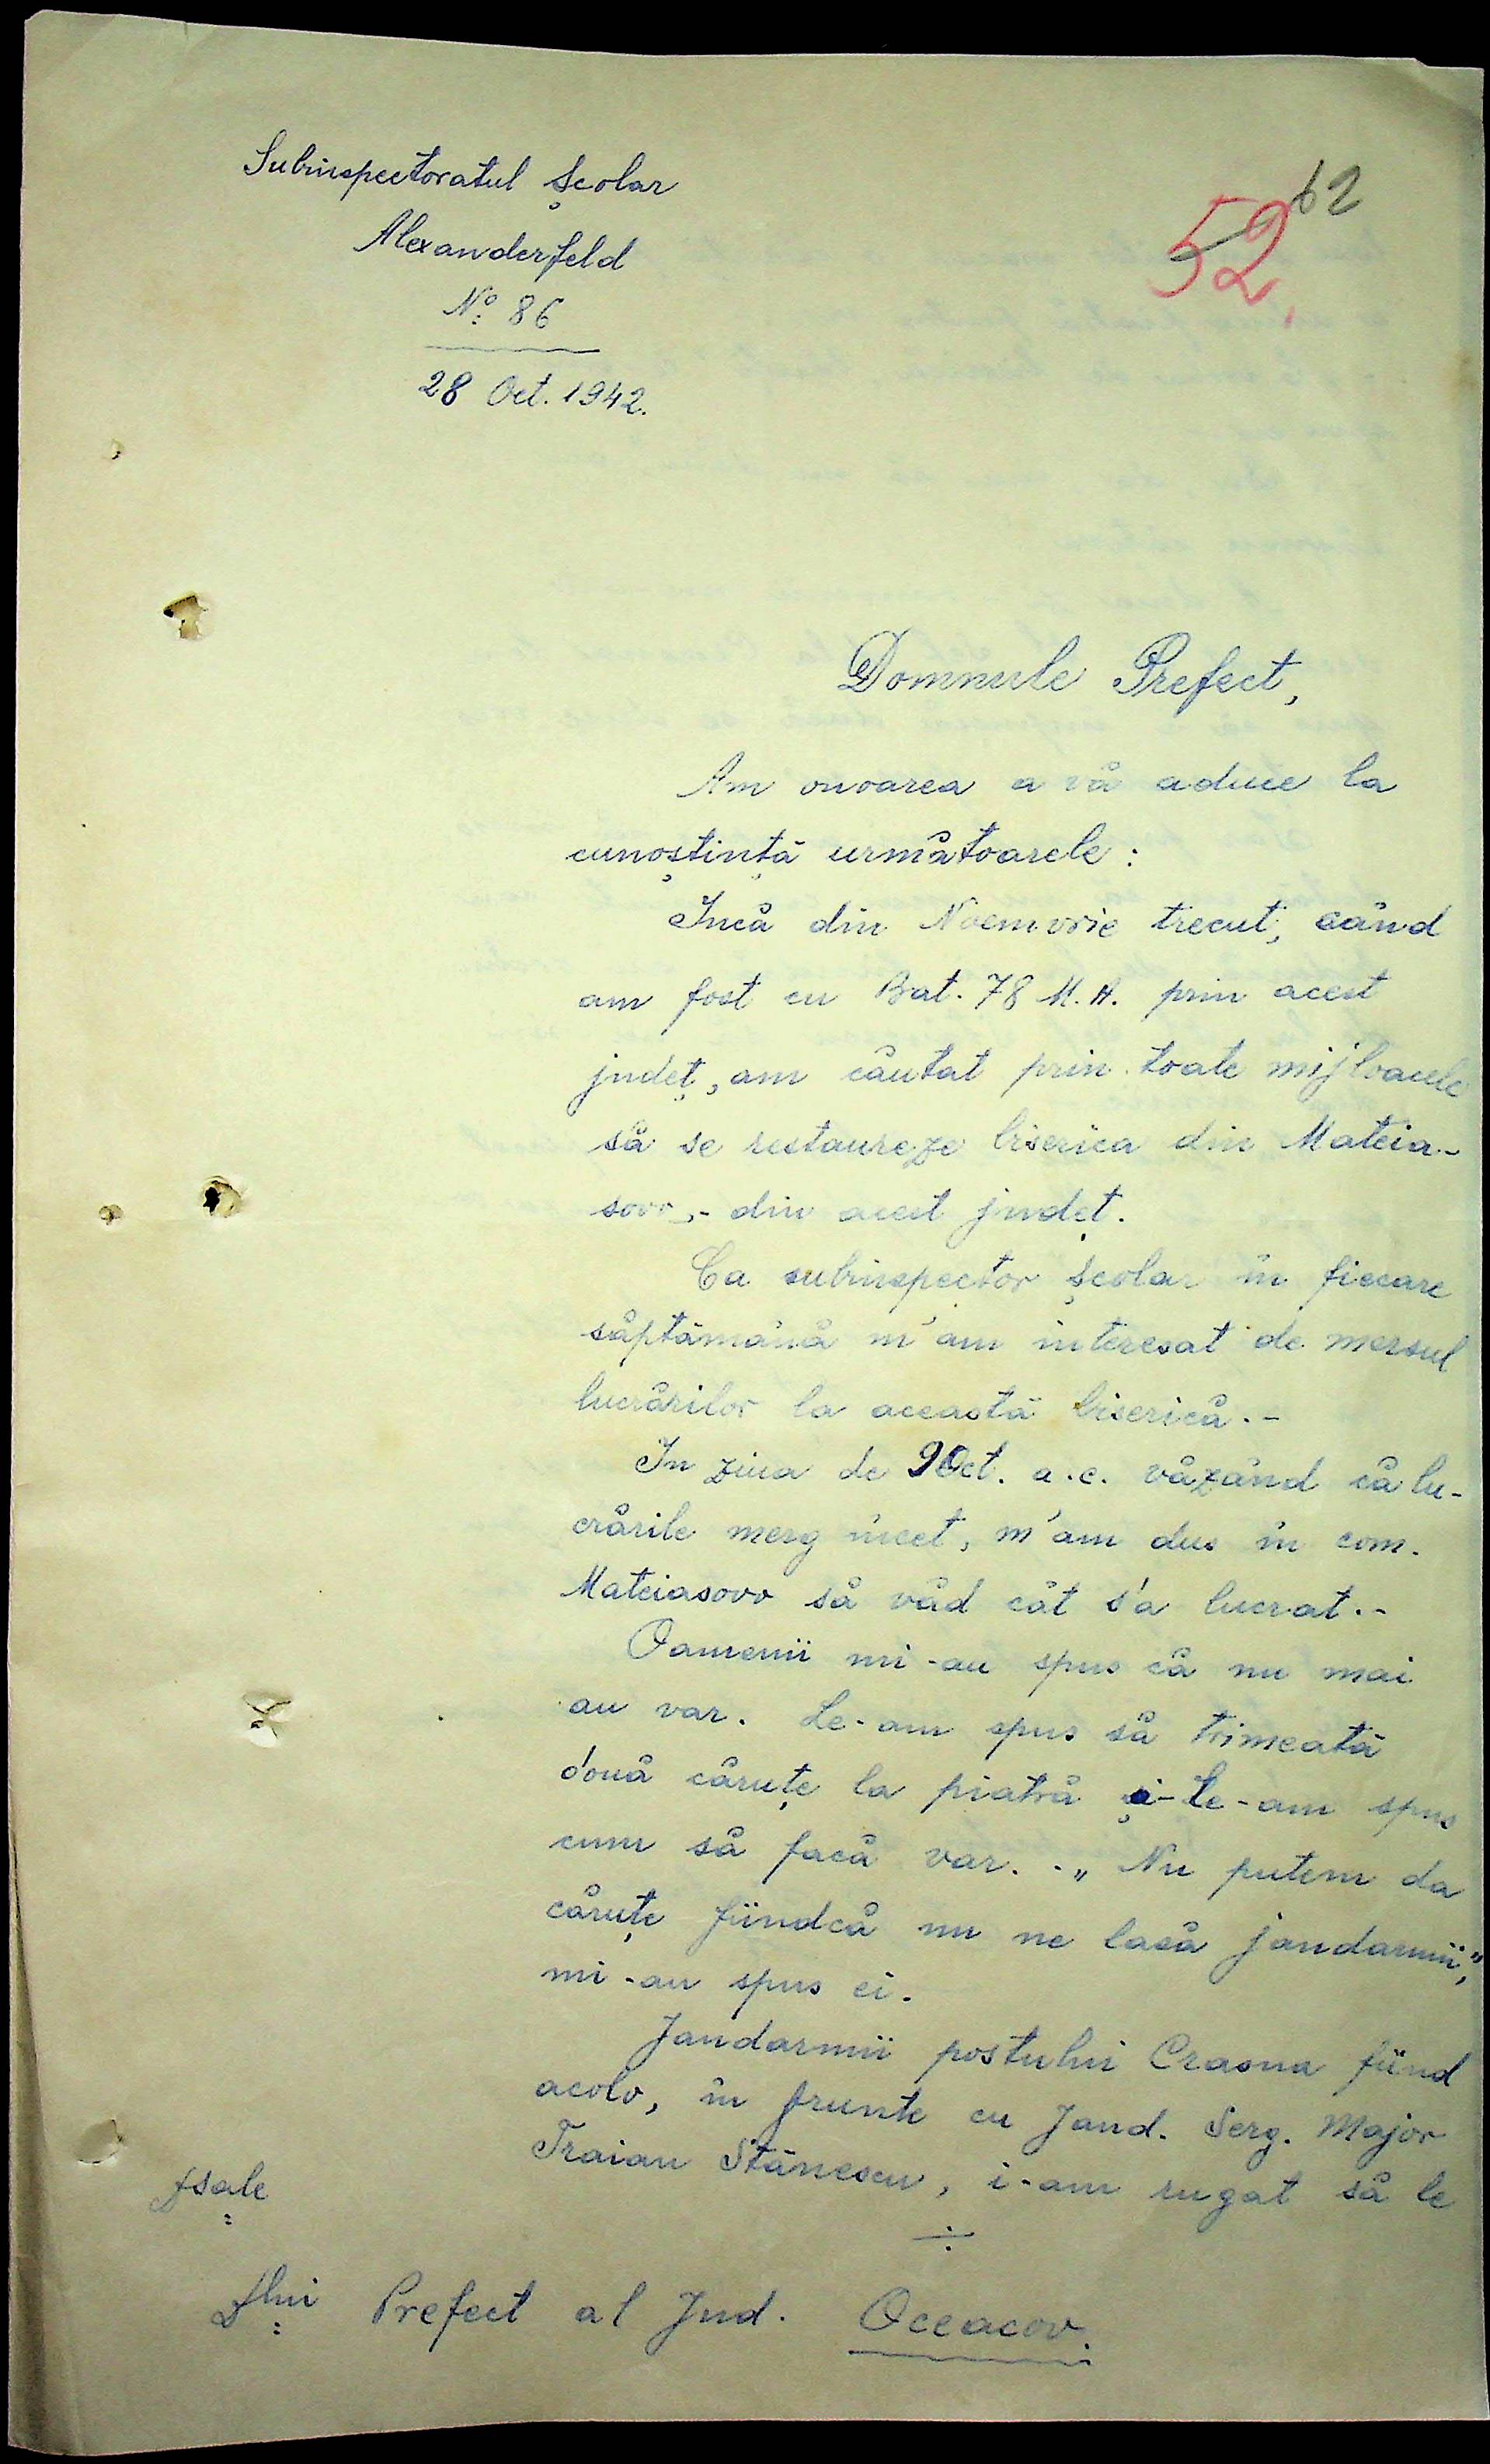 Subinspectoratul Școlar
Alexanderfeld
Nº 86
28 Oct. 1942.
62
52
Domnule Prefect,
Am onoarea a vă aduce la
cunoștință următoarele:
Încă din Noemvrie trecut, când
am fost cu Bat. 78 M.A. prin acest
județ, am căutat prin toate mijloacele
să se restaureze biserica din Mateia-
sovo,- din acest județ.
Ca subinspector școlar în fiecare
săptămână m'am interesat de mersul
lucrărilor la această biserică.-
In ziua de 9 Oct. a.c. văzând că lu-
crările merg încet, m'am dus în com.
Mateiasovo să văd cât s'a lucrat.-
Oamenii mi-au spus că nu mai
au var. Le-am spus să trimeată
două căruțe la piatră și-le-am spus
cum să facă var.-„Nu putem da
căruțe fiindcă nu ne lasă jandarmii,"
mi-au spus ei.
Jandarmii postului Crasna fiind
acolo, în frunte cu Jand. Serg. Major
Traian Stănescu, i-am rugat să le
÷
Dsale
Dlui Prefect al Jud. Oceacov.